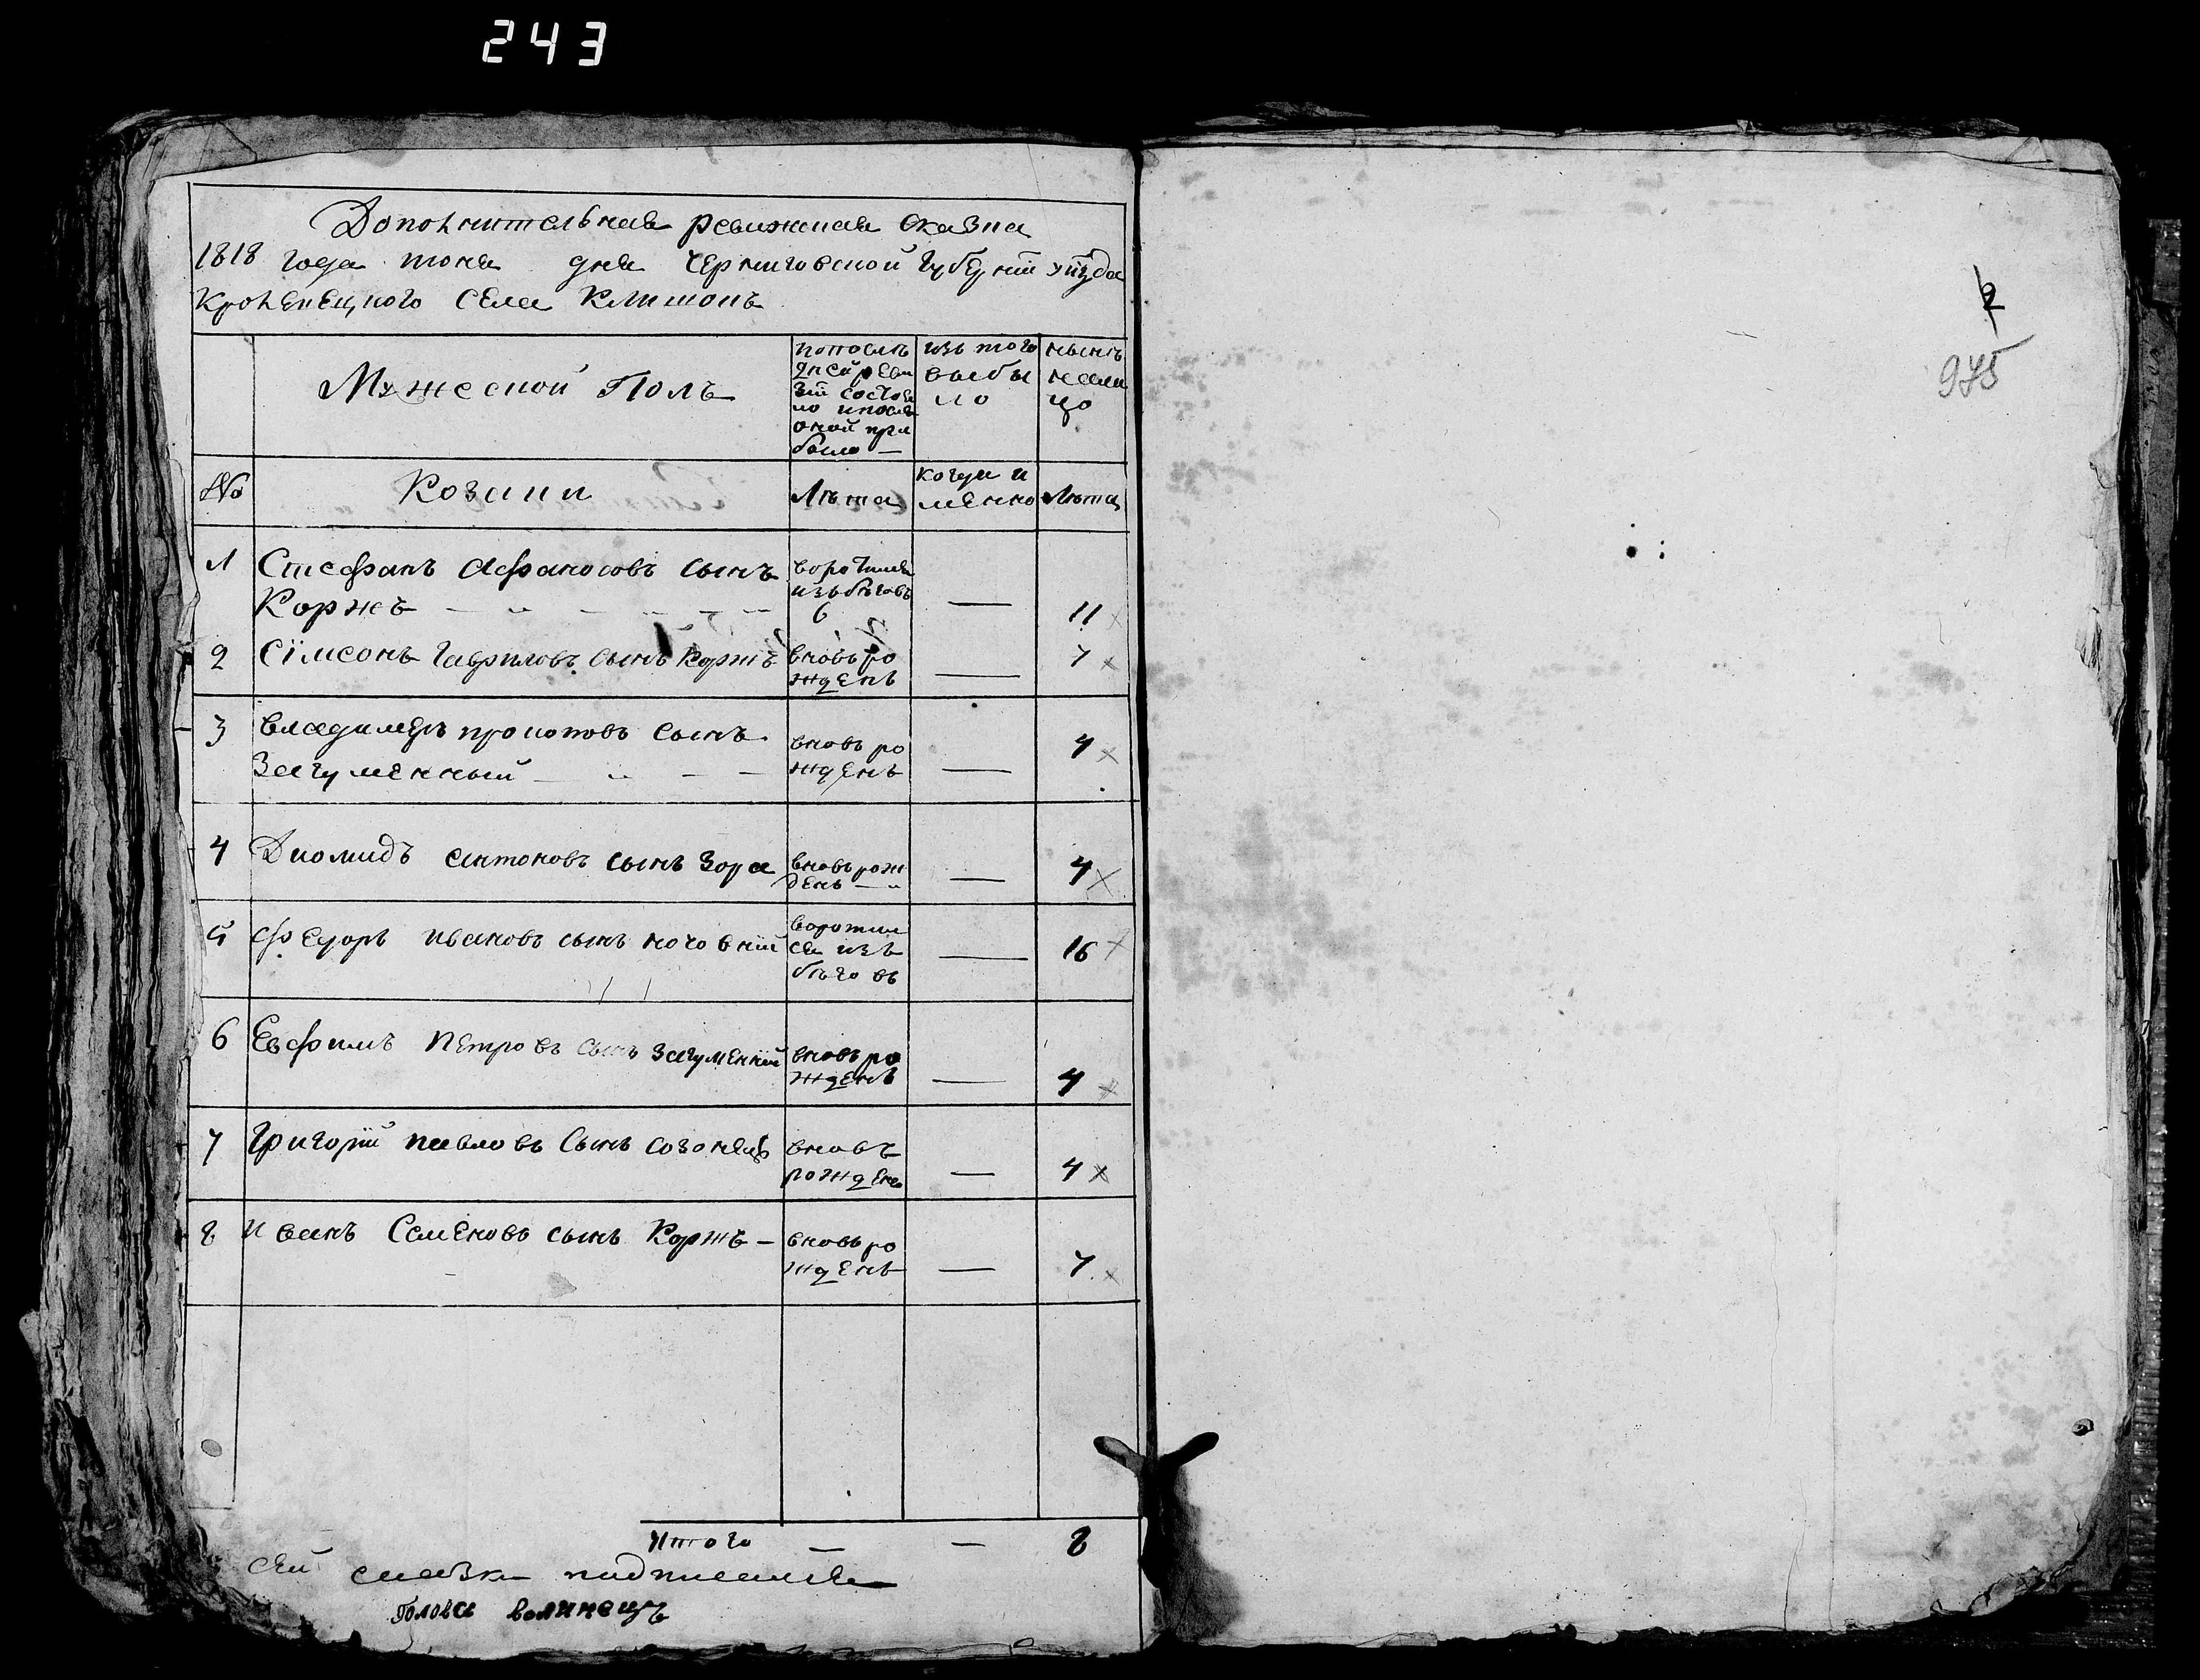 243
Дополнительная ревижская сказка
1818 года июня дня Черниговской Губернїи уѣзда
Кролевецкого села Клишокъ
Мужеской Полъ
по послѣ
дней реви
зїи состоя
ло и после
оной при
было —
изъ того
выбы
ло
нынѣ
на ли
цо
№
Козаки
Лѣта
когда и
менно
Лѣта
1 Стефанъ Афанасовъ сынъ
Коржъ
воротился
изъ бѣговъ
6 — 11
2 Сїмеонъ Гавриловъ сынъ Коржъ
вновь ро
жденъ — 7
3 Владимеръ прокоповъ сынъ
Загуменный
вновь ро
жденъ — 4
4 Диомидъ Антоновъ сынъ Зора
вновь рож
денъ — 4
5 Федоръ Ивановъ сынъ
воротил
ся изъ
бѣговъ — 16
6 Евфимъ Петровъ сынъ Загуменнїй
вновь ро
жденъ — 4
7 Григорїй павловъ Сынъ Созонецъ
вновь
рожденъ — 4
8 Иванъ Семеновъ сынъ Коржъ —
вновь ро
жденъ — 7
Итого — — 8
сей сказки подписался
Голова Волинецъ
2
975